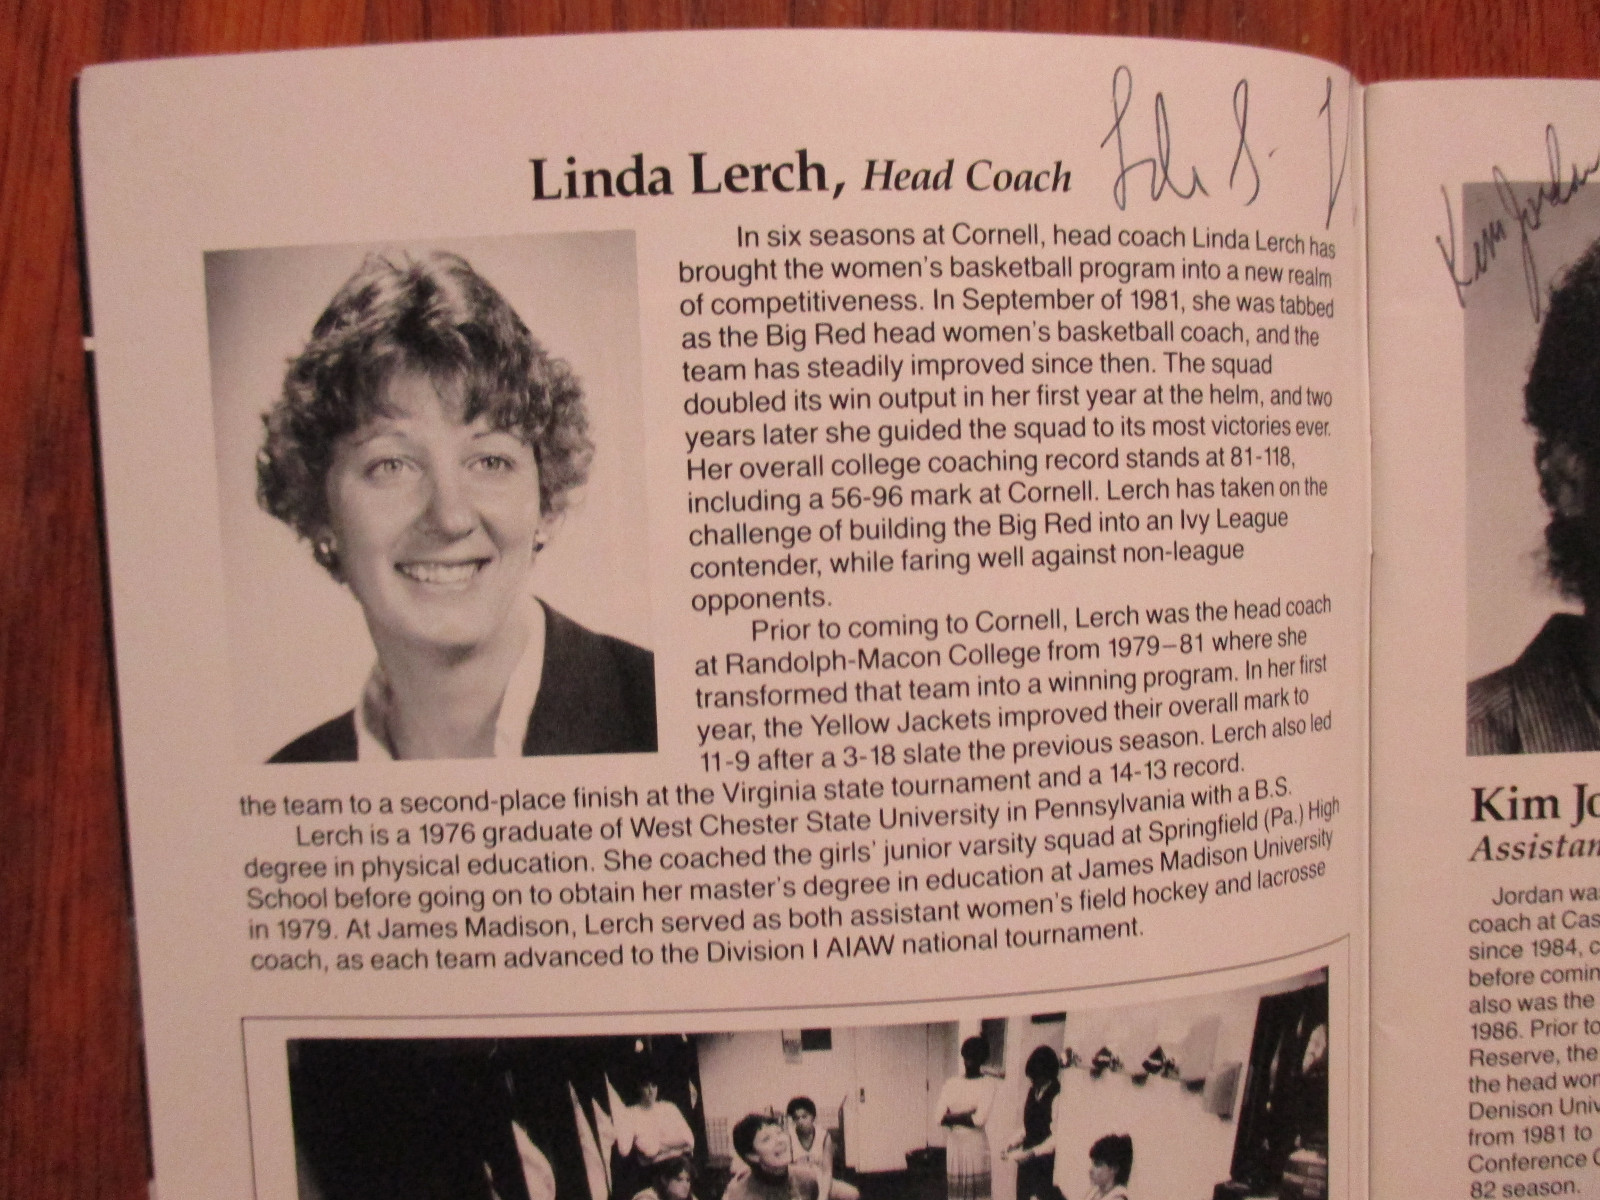 Linda Lerch, Head Coach
In six seasons at Cornell, head coach Linda Lerch has
brought the women's basketball program into a new realm
of competitiveness. In September of 1981, she was tabbed
as the Big Red head women's basketball coach, and the
team has steadily improved since then. The squad
doubled its win output in her first year at the helm, and two
years later she guided the squad to its most victories ever.
Her overall college coaching record stands at 81-118,
including a 56-96 mark at Cornell. Lerch has taken on the
challenge of building the Big Red into an Ivy League
contender, while faring well against non-league
opponents.
Prior to coming to Cornell, Lerch was the head coach
at Randolph-Macon College from 1979–81 where she
transformed that team into a winning program. In her first
year, the Yellow Jackets improved their overall mark to
11-9 after a 3-18 slate the previous season. Lerch also led
the team to a second-place finish at the Virginia state tournament and a 14-13 record.
Lerch is a 1976 graduate of West Chester State University in Pennsylvania with a B.S.
degree in physical education. She coached the girls' junior varsity squad at Springfield (Pa.) High
School before going on to obtain her master's degree in education at James Madison University
in 1979. At James Madison, Lerch served as both assistant women's field hockey and lacrosse
coach, as each team advanced to the Division I AIAW national tournament.
Kim Jordan
Kim Jo
Assistan
Jordan wa
coach at Cas
since 1984, c
before comin
also was the
1986. Prior to
Reserve, the
the head wor
Denison Univ
from 1981 to
Conference C
82 season.